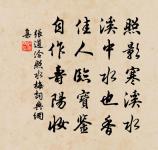 照影寒溪水
溪中水也香
佳人臨寶鑒
自作壽陽妝
張道洽照水梅詞典網
集